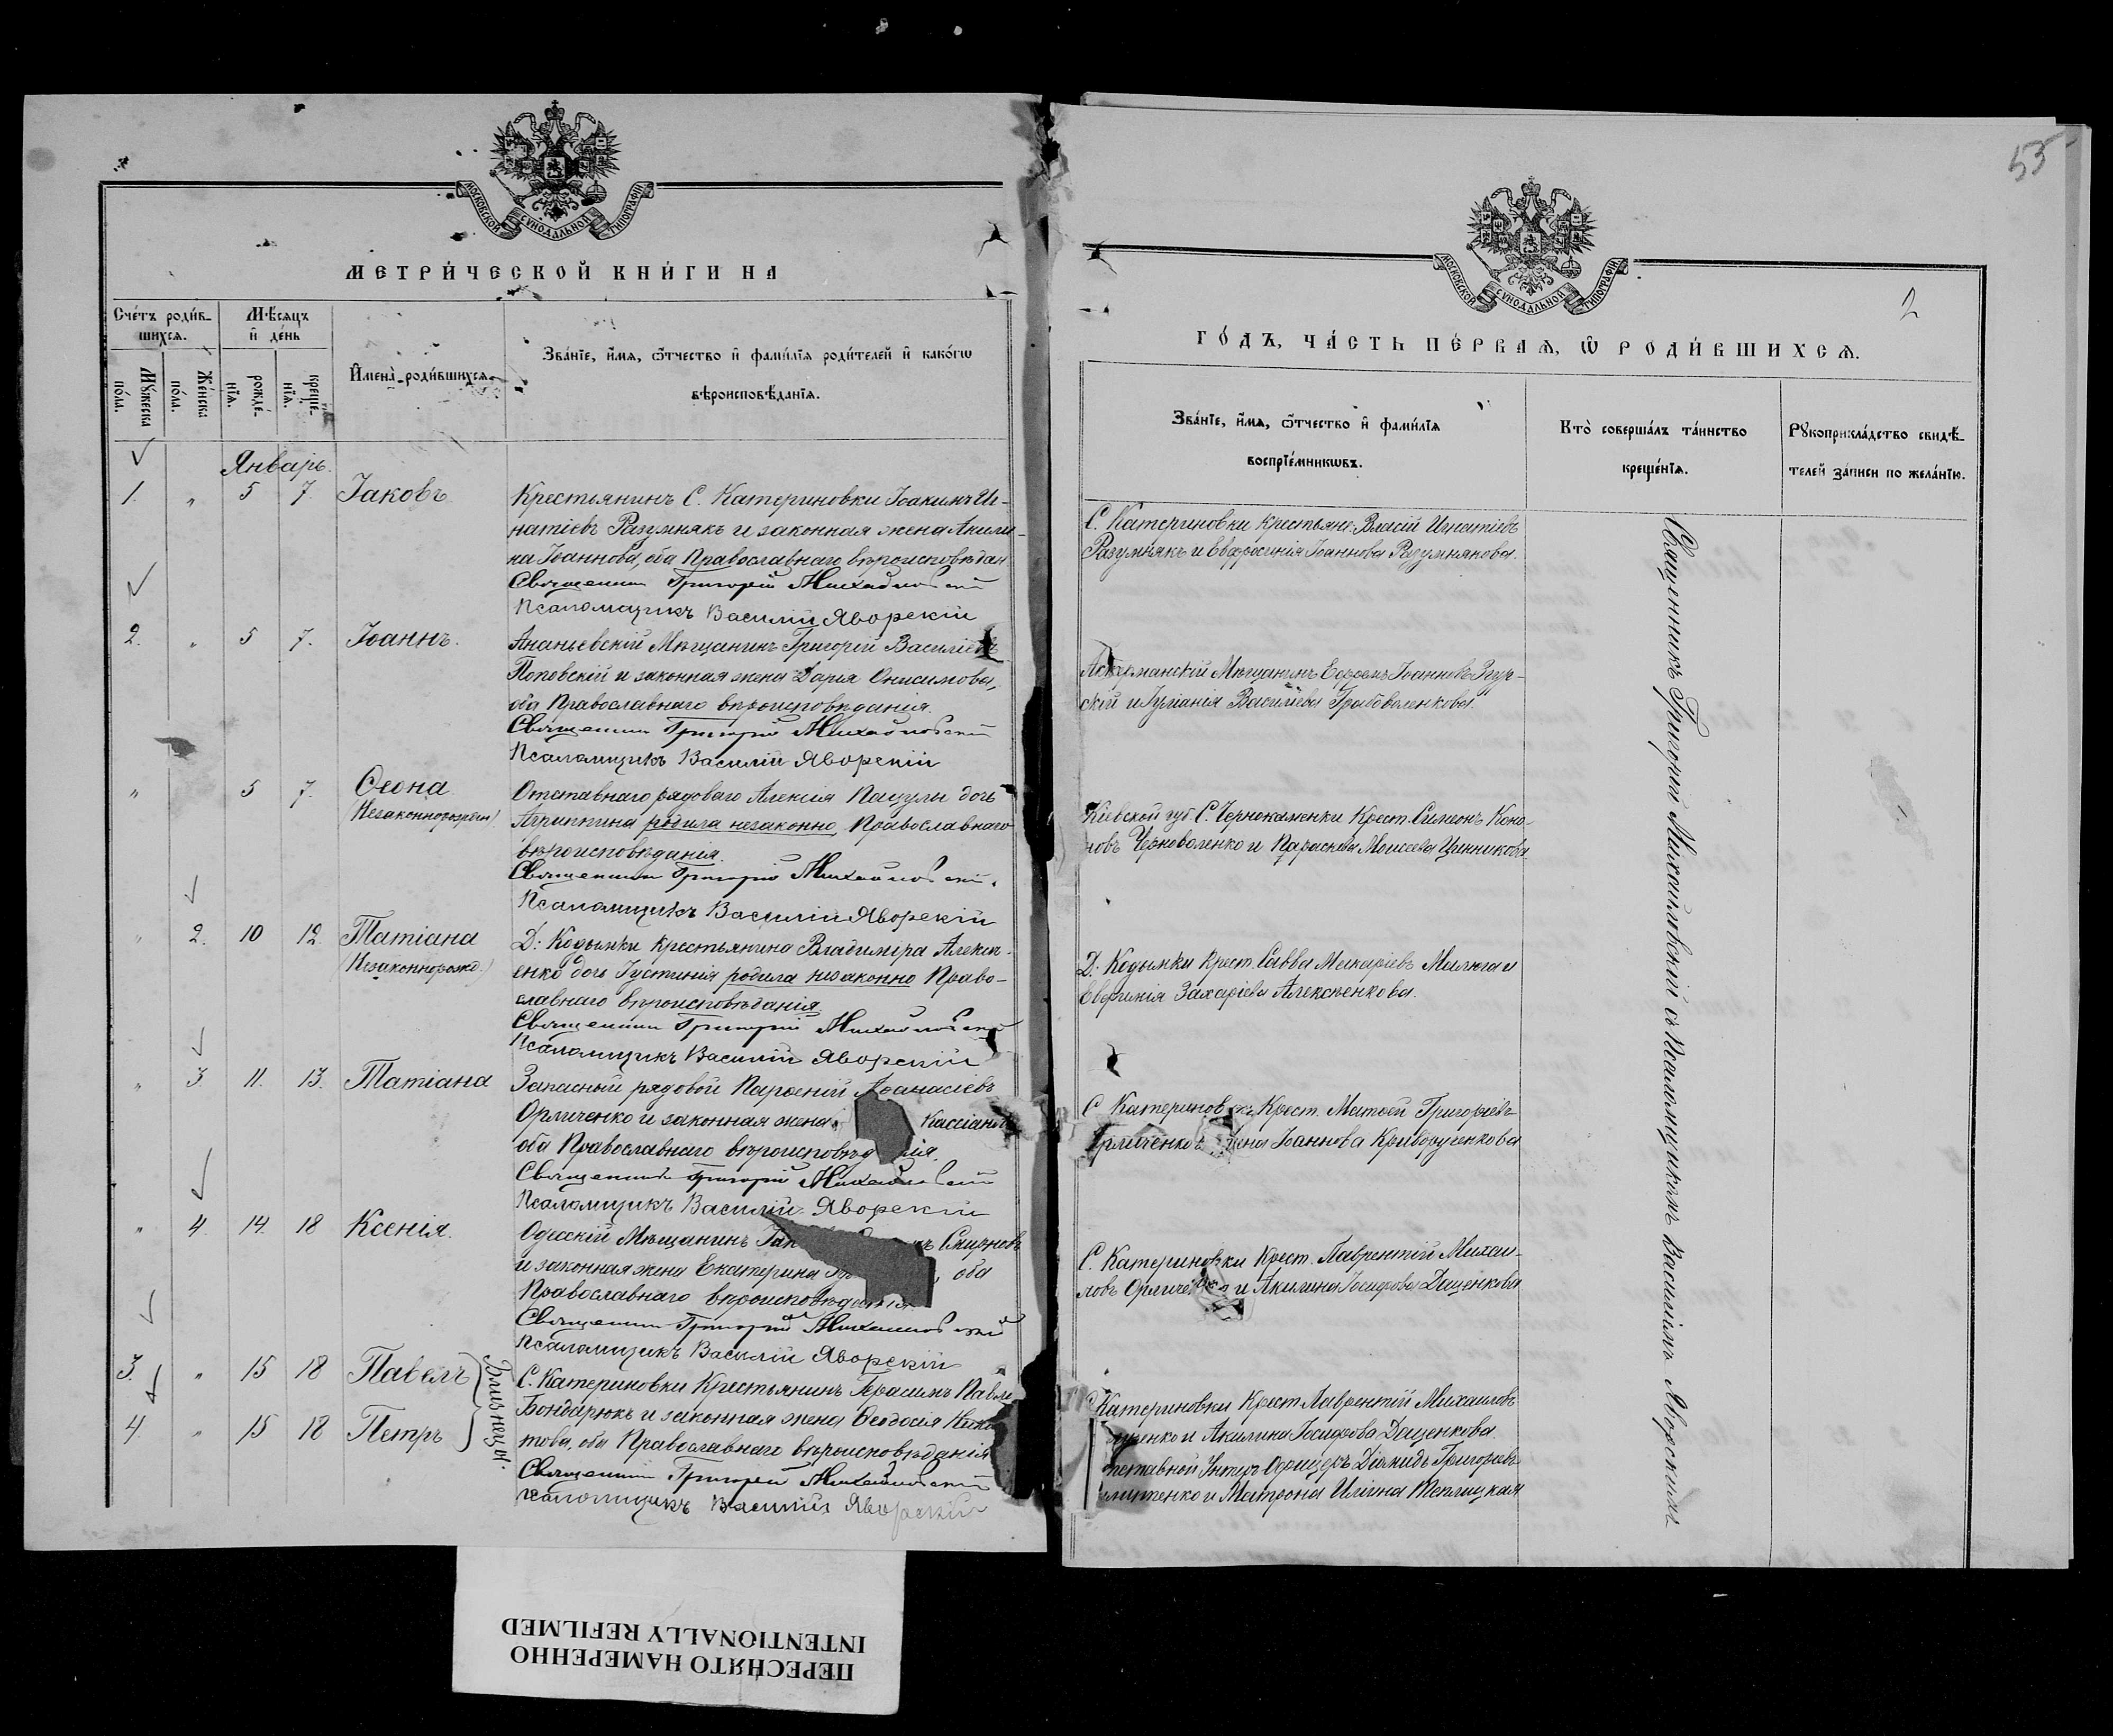 53
МОСКОВСКОЙ СѴНОДАЛЬНОЙ ТИПОГРАФІИ
МЕТРИ́ЧЕСКОЙ КНИ́ГИ НА
Сче́тъ роди́в-
шихсѧ.
Мѣсѧцъ
и҆ де́нь
Мꙋжеска по́ла.
Же́нска по́ла.
рожде́-нїѧ.
креще́-нїѧ.
И҆мена̀ роди́вшихсѧ.
Зва́нїе, и҆́мѧ, ѻ҆́тчество и҆ фами́лїѧ роди́телей и҆ како́гѡ
вѣроисповѣ́данїѧ.
Январь.
1. " 5 7. Іаковъ
Крестьянинъ С. Катериновки Іоакимъ Иг-
натіевъ Разумнякъ и законная жена Акили-
на Іоаннова, оба Православнаго вѣроисповѣдан
Священник Григорій Михайловскій
Псаломщикъ Василій Яворскій
2. " 5 7. Іоаннъ.
Ананьевскій Мѣщанинъ Григорій Василіевъ
Поповскій и законная жена Дарія Онисимова,
оба Православнаго вѣроисповѣданія.
Священник Григорій Михайловскій
Псаломщикъ Василій Яворскій
" 5 7. Ѳеона
(Незаконнорожден)
Отставнаго рядоваго Алексія Пацулы дочь
Агриппина родила незаконно, Православнаго
вѣроисповѣданія.
Священник Григорій Михайловскій.
Псаломщикъ Василій Яворскій
" 2. 10 12. Татіана
(Незаконнорожд.)
Д: Кодымки крестьянина Владимира Алексѣ-
енко дочь Іустинія родила незаконно Право-
славнаго вѣроисповѣданія
Священник Григорій Михайловскій
Псаломщикъ Василій Яворскій
" 3. 11. 13. Татіана
Запасный рядовой Парѳеній Аѳанасіевъ
Орличенко и законная жена Кассіан
оба Православнаго вѣроисповѣд нія.
Священник Григорій Михайловскій
Псаломщикъ Василій Яворскій
" 4. 14. 18 Ксенія.
Одесскій Мѣщанинъ Смирновъ
и законная жена Екатерина оба
Православнаго вѣроисповѣданія
Священник Григорій Михайловскій
Псаломщикъ Василій Яворскій
3. " 15 18 Павелъ
4. " 15 18 Петръ
Близнецы.
С. Катериновки Крестьянинъ Герасимъ Павло
Бондарюкъ и законная жена Ѳеодосія Ники
това, оба Православнаго вѣроисповѣданія
Священник Григорій Михайловскій
Псаломщикъ Василій Яворскій
МОСКОВСКОЙ СѴНОДАЛЬНОЙ ТИПОГРАФІИ
2
ГО́ДЪ, ЧА́СТЬ ПЕ́РВАѦ, Ѽ РОДИ́ВШИХСѦ.
Зва́нїе, и҆́мѧ, ѻ҆́тчество и҆ фами́лїѧ
воспрїе́мникѡвъ.
Кто̀ соверша́лъ та́инство
креще́нїѧ.
Рꙋкоприкла́дство свидѣ́-
телей за́писи по жела́нїю.
С. Катериновки крестьяне: Власій Игнатіевъ
Разумнякъ и Евфросинія Іоаннова Разумнякова.
Аккерманскій Мѣщанинъ Ефремъ Іоанновъ Згур-
скій и Іуліанія Василіева Грабоваленкова.
Кіевской губ. С. Чернокаменки Крест. Симеонъ Коно-
новъ Черноволенко и Параскева Моисеева Цинникова.
Д. Кодымки Крест. Савва Макаріевъ Милюга и
Евфимія Захаріева Алексѣенкова.
С Катериновки Крест. Матѳей Григоріевъ
Орличенко Іоаннова Криворученкова
С. Катериновки Крест. Лаврентій Михаи-
ловъ Орличенко и Акилина Іосифова Даценкова
С Катериновки Крест Лаврентій Михаиловъ
и Акилина Іосифова Даценкова
Отставной Унтеръ Офицеръ Діомидъ Григоріевъ
и Матрона Иліина Теплицкая
Священникъ Григорій Михайловскій съ Псаломщикомъ Василіемъ Яворскимъ
ПЕРЕСНЯТО НАМЕРЕННО
INTENTIONALLY REFILMED